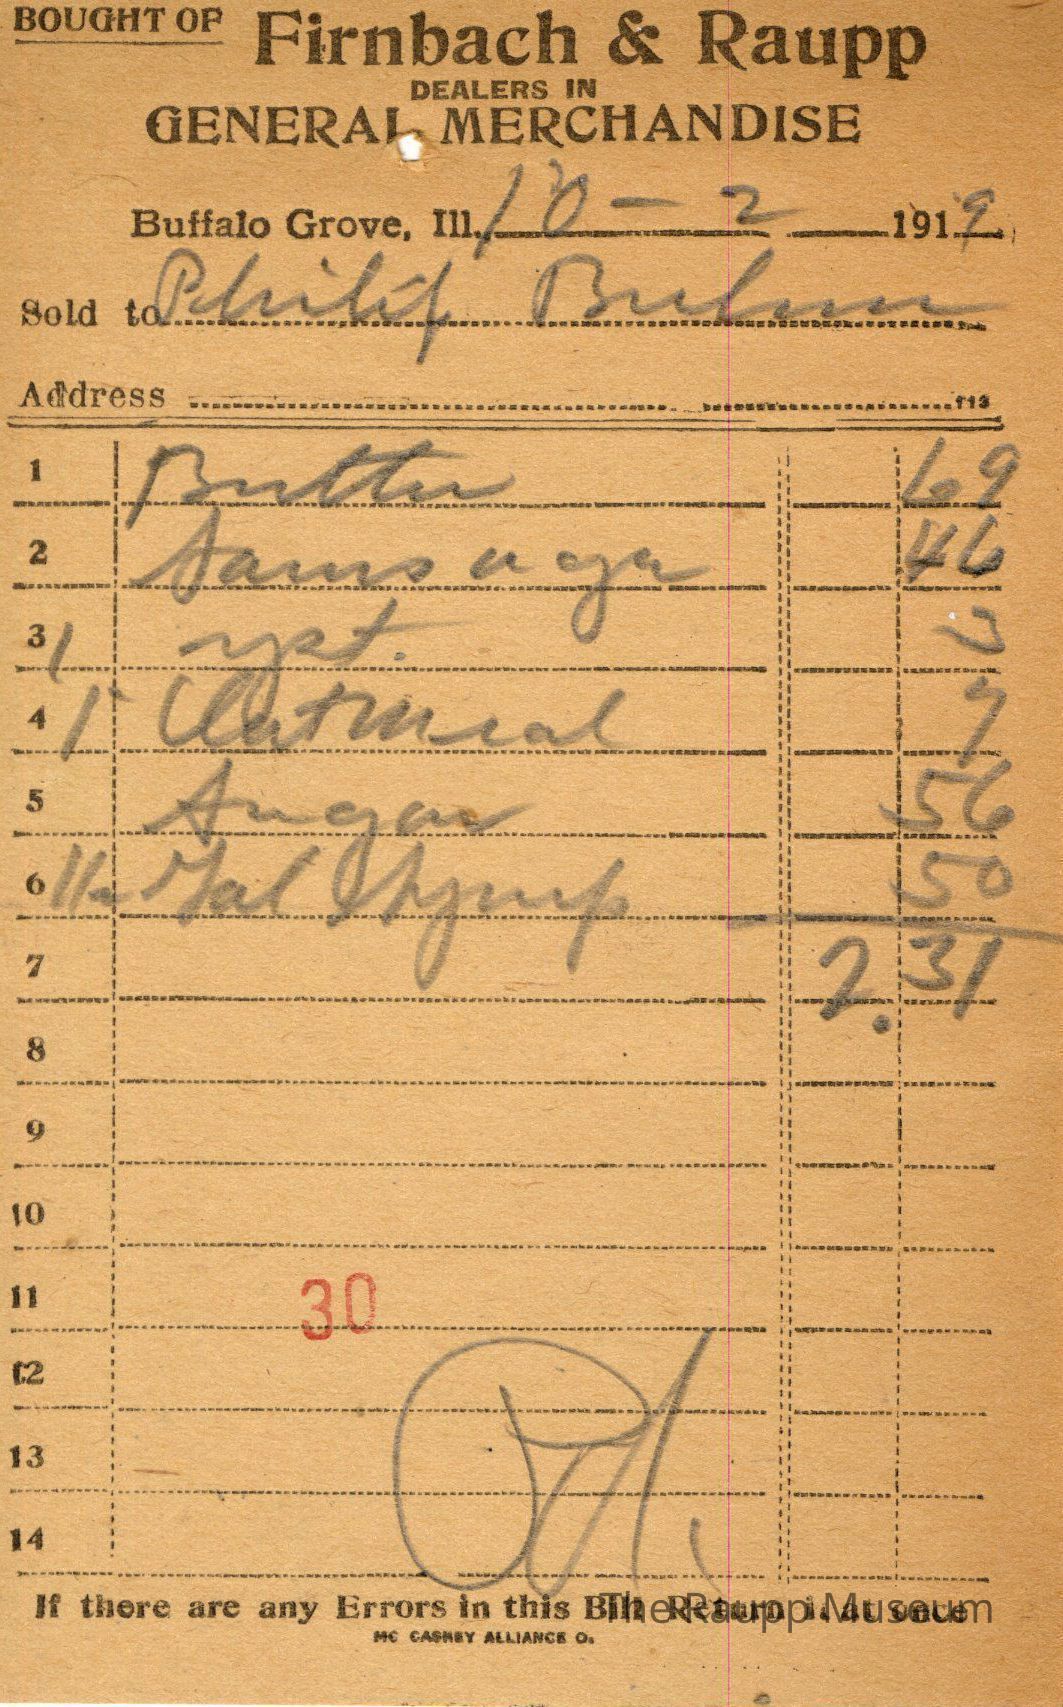 BOUGHT OF Firnbach & Raupp
DEALERS IN
GENERAL MERCHANDISE
Buffalo Grove, Ill. 10 - 2 1919
Sold to Philip
Address 113
1 Butter 69
2 46
3 1 yst. 3
4 1 Oatmeal 7
5 Sugar 56
6 Gal Syrup 50
7 2.31
8
9
10
11 30
12
13
14
If there are any Errors in this Bill Return it at once
The Raupp Museum
MC CASKEY ALLIANCE O.